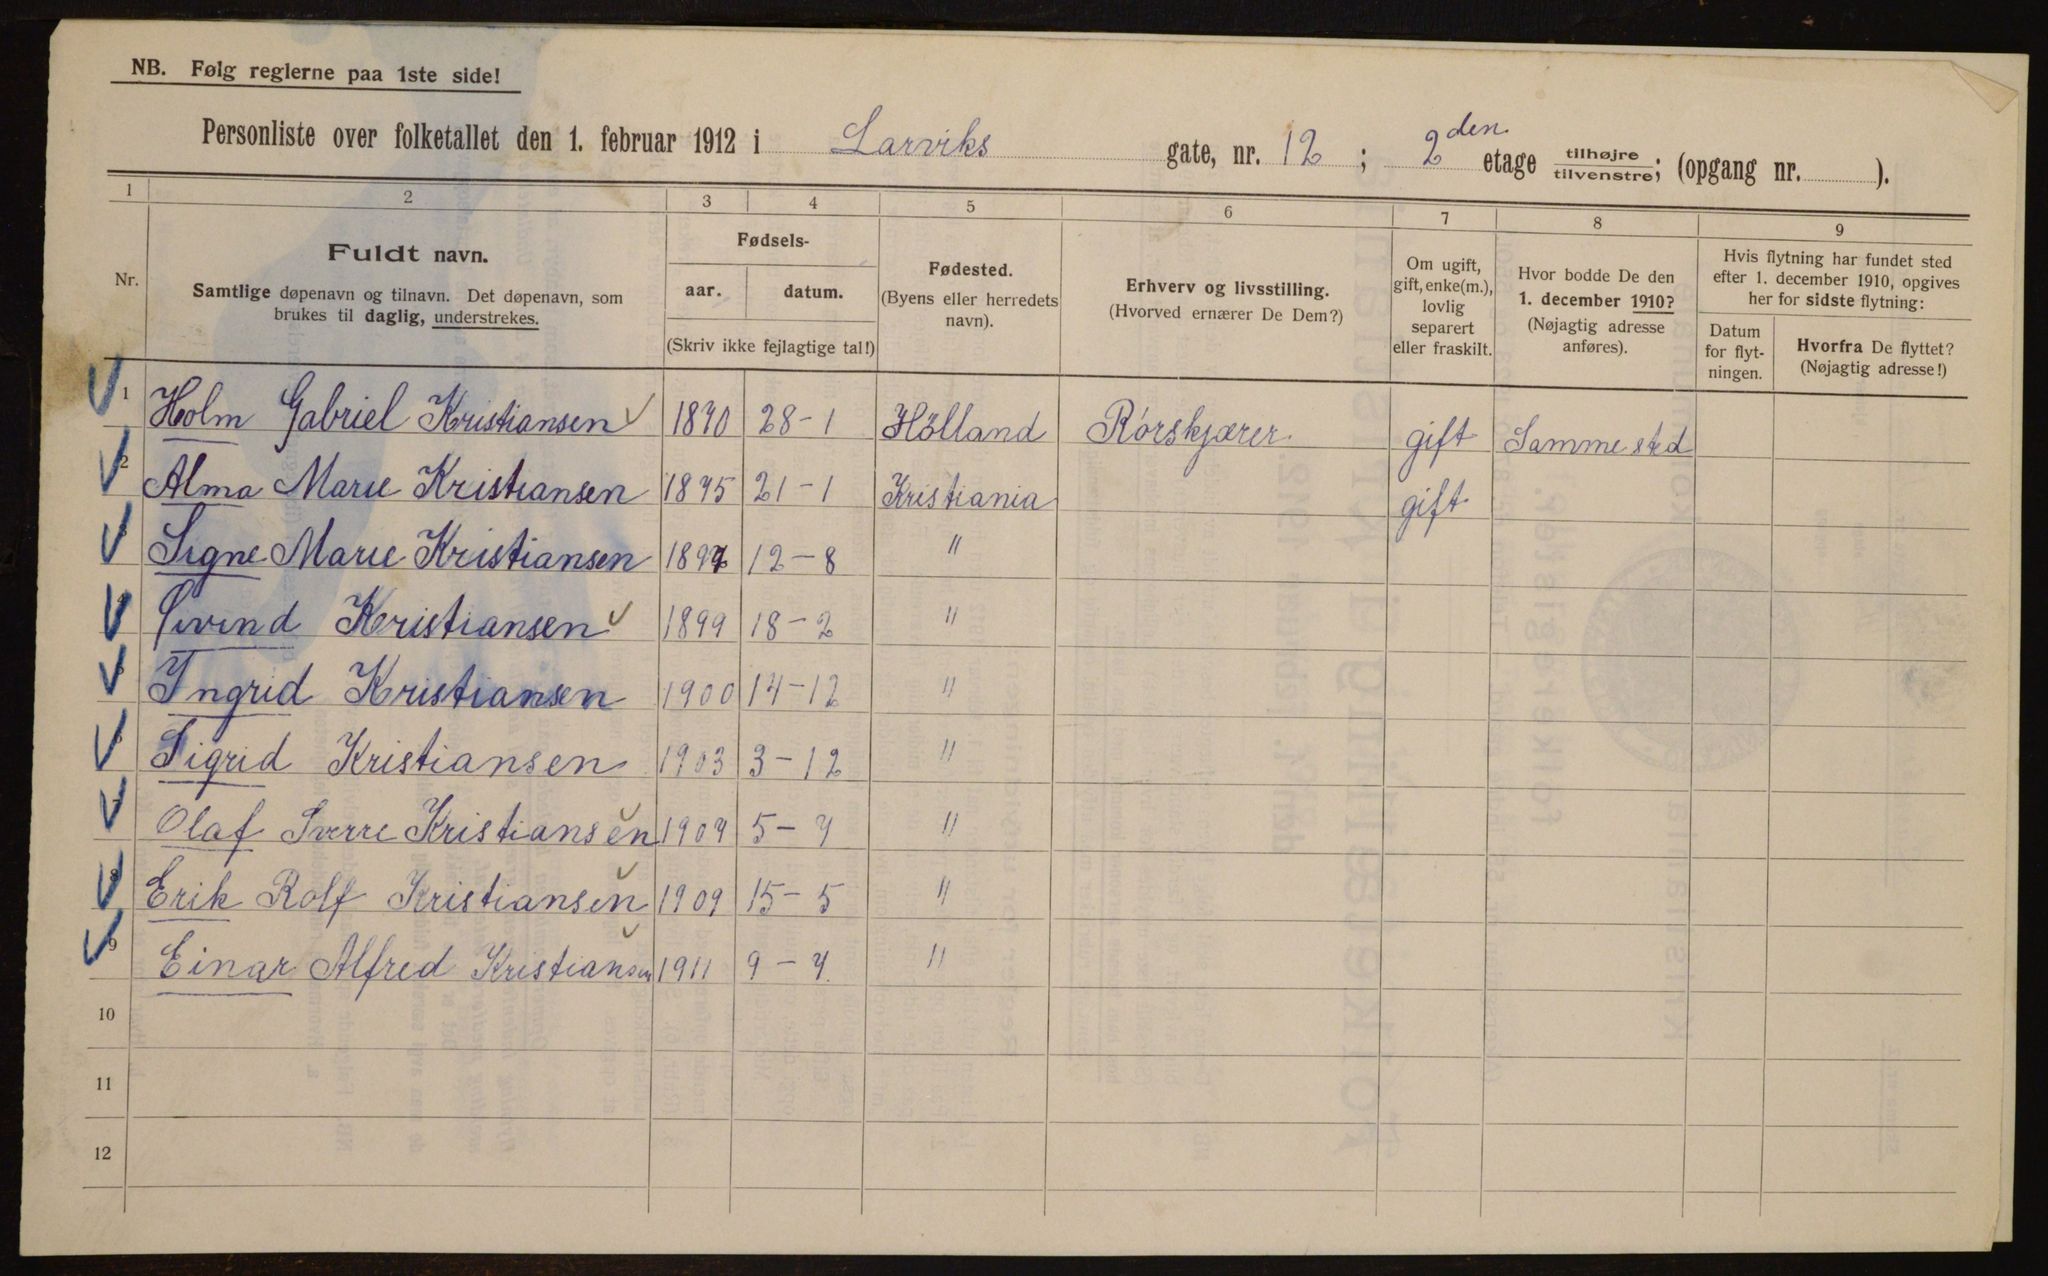 NB. Følg reglerne paa 1ste side!
Personliste over folketallet den 1. februar 1912 i Larviks gate, nr. 12 ; 2den etage tilhøjre tilvenstre; (opgang nr. ).
1 2 3 4 5 6 7 8 9
Nr.
Fuldt navn.
Samtlige døpenavn og tilnavn. Det døpenavn, som
brukes til daglig, understrekes.
Fødsels-
aar. datum.
(Skriv ikke fejlagtige tal!)
Fødested.
(Byens eller herredets
navn).
Erhverv og livsstilling.
(Hvorved ernærer De Dem?)
Om ugift,
gift, enke(m.),
lovlig
separert
eller fraskilt.
Hvor bodde De den
1. december 1910?
(Nøjagtig adresse
anføres).
Hvis flytning har fundet sted
efter 1. december 1910, opgives
her for sidste flytning:
Datum
for flyt-
ningen.
Hvorfra De flyttet?
(Nøjagtig adresse!)
1 Holm Gabriel Kristiansen 1870 28-1 Hölland Rórskjærer gift Samme sted
2 Alma Marie Kristiansen 1875 21-1 Kristiania gift
3 Signe Marie Kristiansen 12-8 "
4 Øivind Kristiansen 1899 18-2 "
5 Yngrid Kristiansen 1900 14-12 "
6 Sigrid Kristiansen 1903 3-12 "
7 Olaf Sverre Kristiansen 5-4 "
8 Erik Rolf Kristiansen 1909 15-5 "
9 Einar Alfred Kristiansen 1911 9-4. "
10
11
12